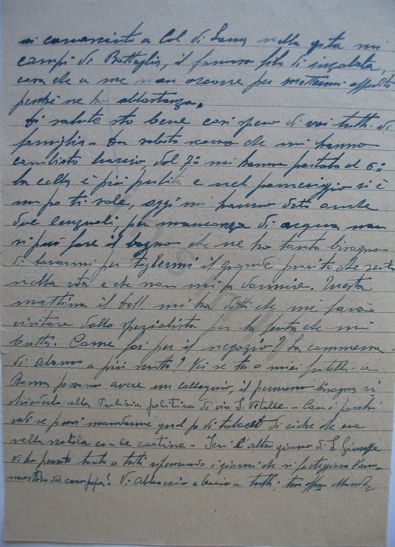 a Col di Lana nella gita nei
campi di Battaglia, il famoso filo di insalata,
cosa che a me non occorre per mettermi appetito
perché ne ho abbastanza.
Di salute sto bene così spero di voi tutti di
famiglia. Da sabato scorso che mi hanno
cambiato braccio dal 7º mi hanno portato al 6º
la cella è più pulita e nel passeggio vi è
un po di sole, oggi mi hanno dato anche
due per mancanza di acqua, non
si può fare il bagno che ne ho tanto bisogno
di lavarmi per togliermi il grande prurito che sento
nella vita e che non mi fa dormire. Questa
mattina il dott. mi ha detto che mi farà
visitare dallo specialista per la testa che mi
batte. Come fai per il negozio? La commessa
di Adamo a più scritto? Vi se tu o miei fratelli a
Roma possono avere un colloquio, il permesso bisogna
chiederlo alla Polizia politica di via S. Vitale. Con i pacchi
vedi se puoi mandarmi quel po di tabacco di cicche che era
nella scatola con le cartine. Ieri l'altro giorno di S. Giuseppe
vi ho pensato tanto a tutti i giorni che si festeggiava
del caro papà! Vi abbraccio e bacio a tutti, tuo